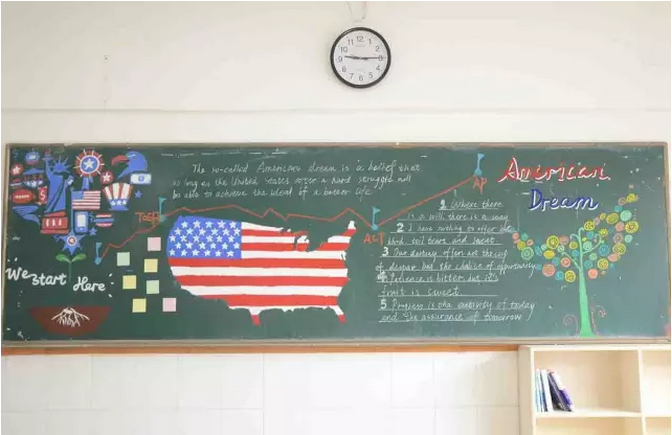 The so-called American dream is a belief that
as long as the United States after a hard struggle will
be able to achieve the ideal of a better life
American
Dream
AP
Toefl
ACT
We start Here
1 Where there
is a will there is a way
2 I have nothing to offer but
blood toil tears and sweat
3 Our destiny offers not the cup
of despair but the chalice of opportunity
4 Patience is bitter but it's
fruit is sweet
5 Progress is the activity of today
and the assurance of tomorrow
12
1
2
3
4
5
6
7
8
9
10
11